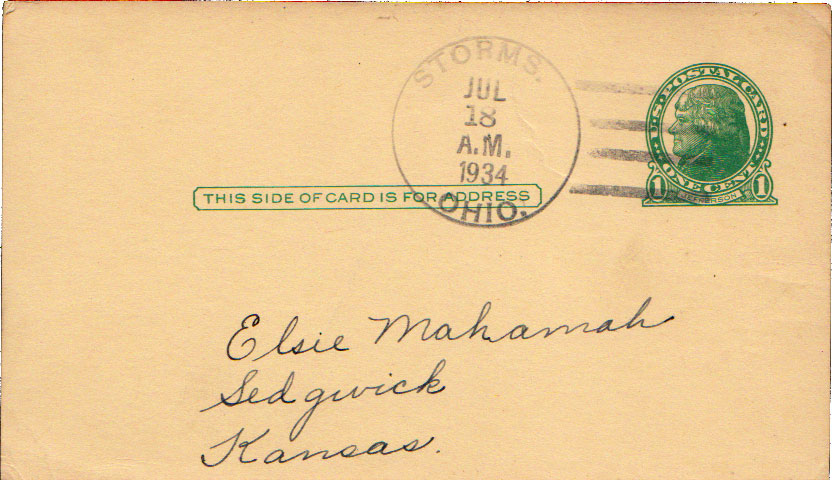 STORMS.
JUL
18
A.M.
1934
OHIO.
U.S. POSTAL CARD
ONE CENT
1 JEFFERSON 1
THIS SIDE OF CARD IS FOR ADDRESS
Elsie Mahamah
Sedgwick
Kansas.